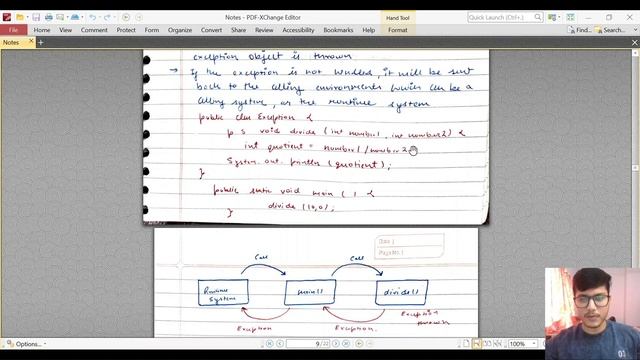 Notes - PDF-XChange Editor
Hand Tool
Quick Launch (Ctrl+.)
File
Home
View
Comment
Protect
Form
Organize
Convert
Share
Accessibility
Bookmarks
Help
Format
Find...
Search...
Notes
exception object is thrown
→ If the exception is not handled, it will be sent
back to the calling environments which can be a
calling system, or the runtime system
public class Exception {
p s void divide (int number1, int number2) {
int quotient = number1/number2
System.out.println (quotient);
}
public static void main ( ) {
divide (10,0);
}
Date
Page No.
Call
Call
Runtime
System
main()
divide()
Exception
Exception.
Exception
thrown
Options...
9 / 22
100%